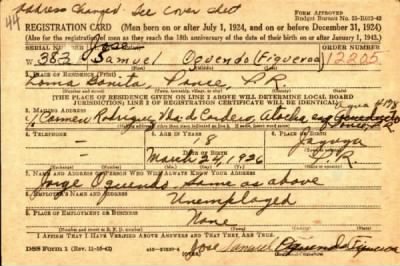 Address Changed - See Cover Sheet
44
FORM APPROVED
Budget Bureau No. 33-R013-42
REGISTRATION CARD (Men born on or after July 1, 1924, and on or before December 31, 1924)
(Also for the registration of men as they reach the 18th anniversary of the date of their birth on or after January 1, 1943.)
SERIAL NUMBER
ORDER NUMBER
Jose
383 Samuel Oquendo (Figueroa) 12205
2. PLACE OF RESIDENCE (Print)
Loma Bonita Ponce, P.R.
[THE PLACE OF RESIDENCE GIVEN ON LINE 2 ABOVE WILL DETERMINE LOCAL BOARD
JURISDICTION; LINE 2 OF REGISTRATION CERTIFICATE WILL BE IDENTICAL]
3. MAILING ADDRESS
Carmen Rodríguez Vda. de Cordero, Atocha
Ponce, P.R.
4. TELEPHONE
5. AGE IN YEARS
6. PLACE OF BIRTH
- 18 Jayuya
DATE OF BIRTH
- March 24, 1926 P.R.
7. NAME AND ADDRESS OF PERSON WHO WILL ALWAYS KNOW YOUR ADDRESS
Jorge Oquendo, Same as above
8. EMPLOYER'S NAME AND ADDRESS
Unemployed
9. PLACE OF EMPLOYMENT OR BUSINESS
None
I AFFIRM THAT I HAVE VERIFIED ABOVE ANSWERS AND THAT THEY ARE TRUE.
DSS Form 1 (Rev. 11-16-42)
(OVER)
Jose Samuel Oquendo Figueroa